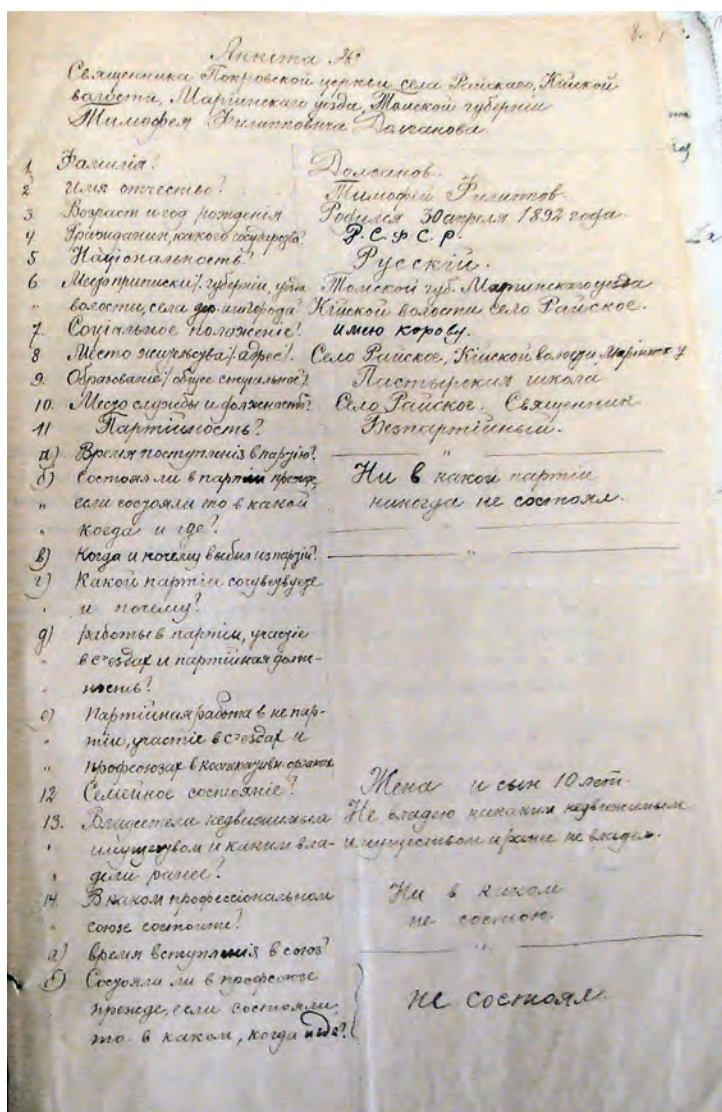 Анкета №
Священника Покровской церкви села Райскаго, Кійской
волости, Маріинскаго уѣзда, Томской губерніи
Тимофея Филипповича Долганова.
1. Фамилія? Долганов.
2 Имя отчество? Тимофей Филиппов.
3. Возраст и год рожденія Родился 30 апреля 1892 года.
4. Гражданин, какого государства? Р.С.Ф.С.Р.
5 Національность? Русскій.
6. Место приписки /. губерніи, уезда Томской губ. Маріинскаго уезда
" волости, села дер. или города? Кійской волости село Райское.
7. Соціальное положеніе? имею корову.
8 Место жительства /. адрес /. Село Райское, Кійской волости, Маріинск. у
9. Образованіе /. общее спеціальное /. Пастырская школа
10. Место службы и должность? Село Райское. Священник
11 Партійность? Безпартійный.
а) Время поступленія в партію? "
б) Состоял ли в партіи прежде, Ни в какой партіи
" если состояли то в какой никогда не состоял.
" когда и где?
в) Когда и почему выбыл из партіи? "
г) Какой партіи сочувствуете
" и почему?
д) работы в партіи, участіе
" в съездах и партійная долж-
" ность?
е) Партійная работа в не пар-
" тіи, участіе в съездах и
" профсоюзах в кооперативн. органах
12 Семейное состояніе? Жена и сын 10 лет.
13. Владеете ли недвижимым Не владею никаким недвижимым
" имуществом и каким вла- имуществом и ранее не владел.
" дели ранее?
14. В каком профессіональном Ни в каком
" союзе состоите? не состою.
а) время вступленія в союз? "
б) Состояли ли в профсоюзе
прежде, если состояли, не состоял.
то в каком, когда и где?